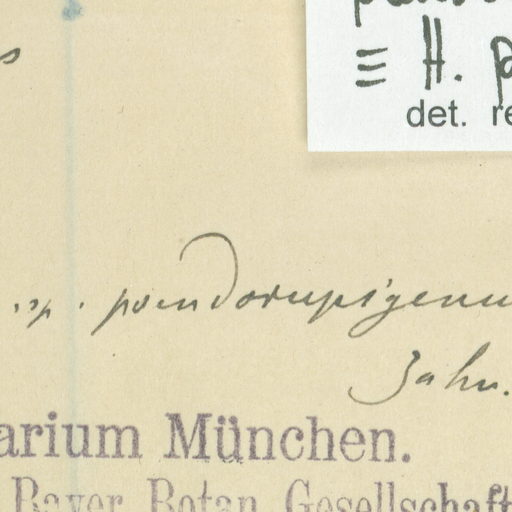 ≡ H. p
det. re
sp. pseudorupigenu
Zahn.
arium München.
Bayer. Botan. Gesellschaft